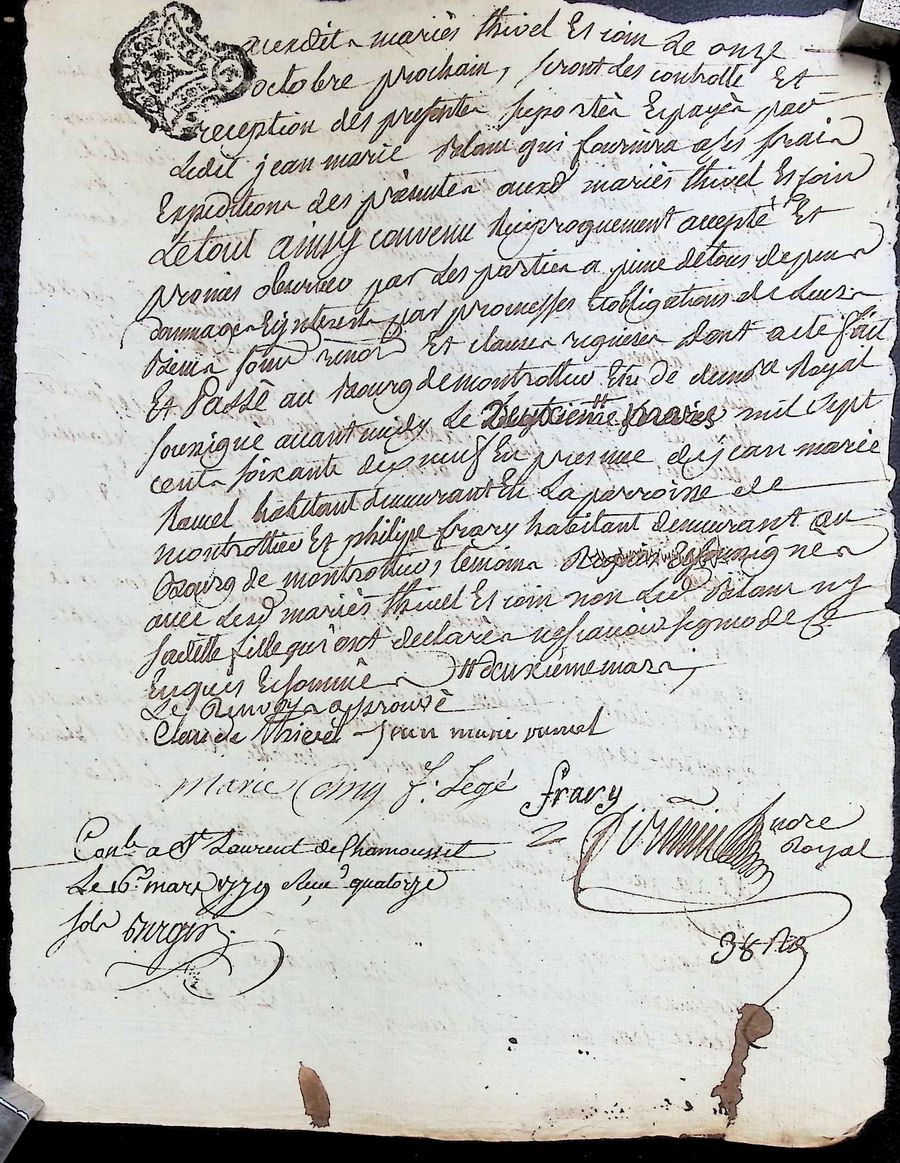 auxdits mariès thivel Et coin Le onze
octobre prochain, seront les controlle Et
reception des presentes suportés Et payés par
Ledit jean marie qui fournira a ses frais
Expedition des presentes auxd mariès thivel Et coin
Le tout ainsy convenu Reciproquement accepté Et
promis observer par Les parties a peine de tous depens
dommages Et interests par promesses obligations de Leurs
biens Et clauses requises dont acte fait
Et Passé au Bourg de montrottier Etude de Royal
soussigné avant midy Le mil sept
cents soixante dix neuf En presence de jean marie
habitant demeurant En La parroisse de
montrottier Et philipe frary habitant demeurant au
Bourg de montrottier, temoins Requis Et soussignés
avec Lesd mariès thivel Et coin non Led ny
saditte fille qui ont declaré ne scavoir signer de ce
Enquis Et sommés # deuxième mars
Le Renvoy approuvé
Claude thivel jean marie
marie Coing f. Legé frary
Conlé a St Laurent de Chamousset
nore Royal
Le 16 mars 1779 Reçu quatorze
sols